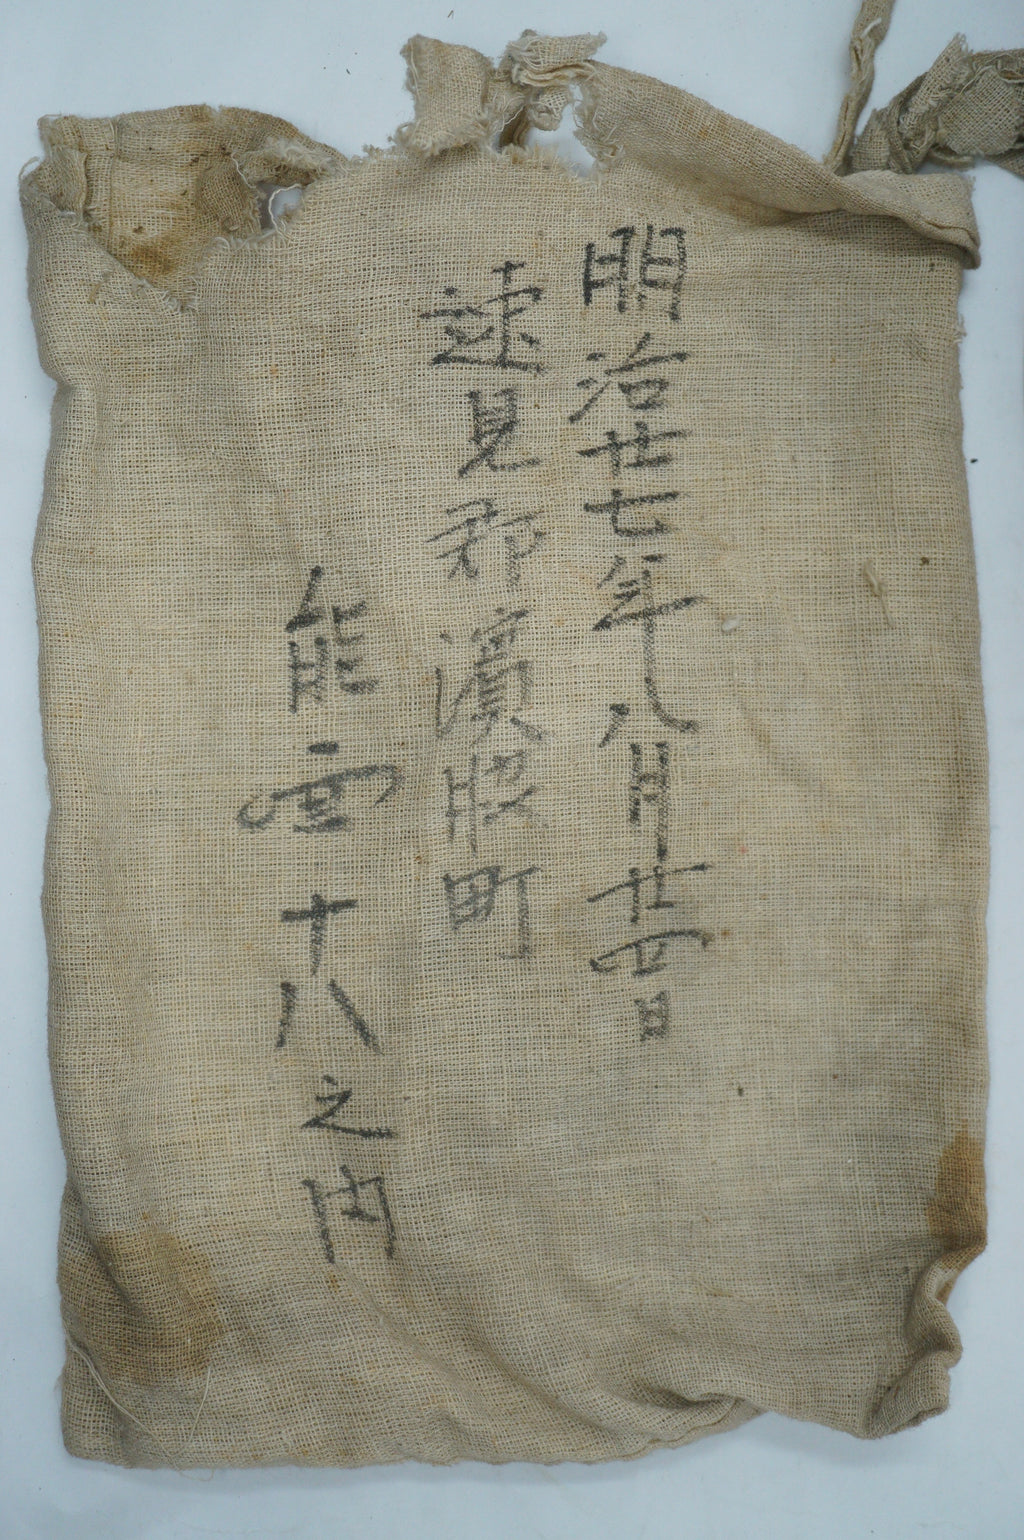 明治廿七年八月廿四日
速見郡濱脇町
能面十八之内